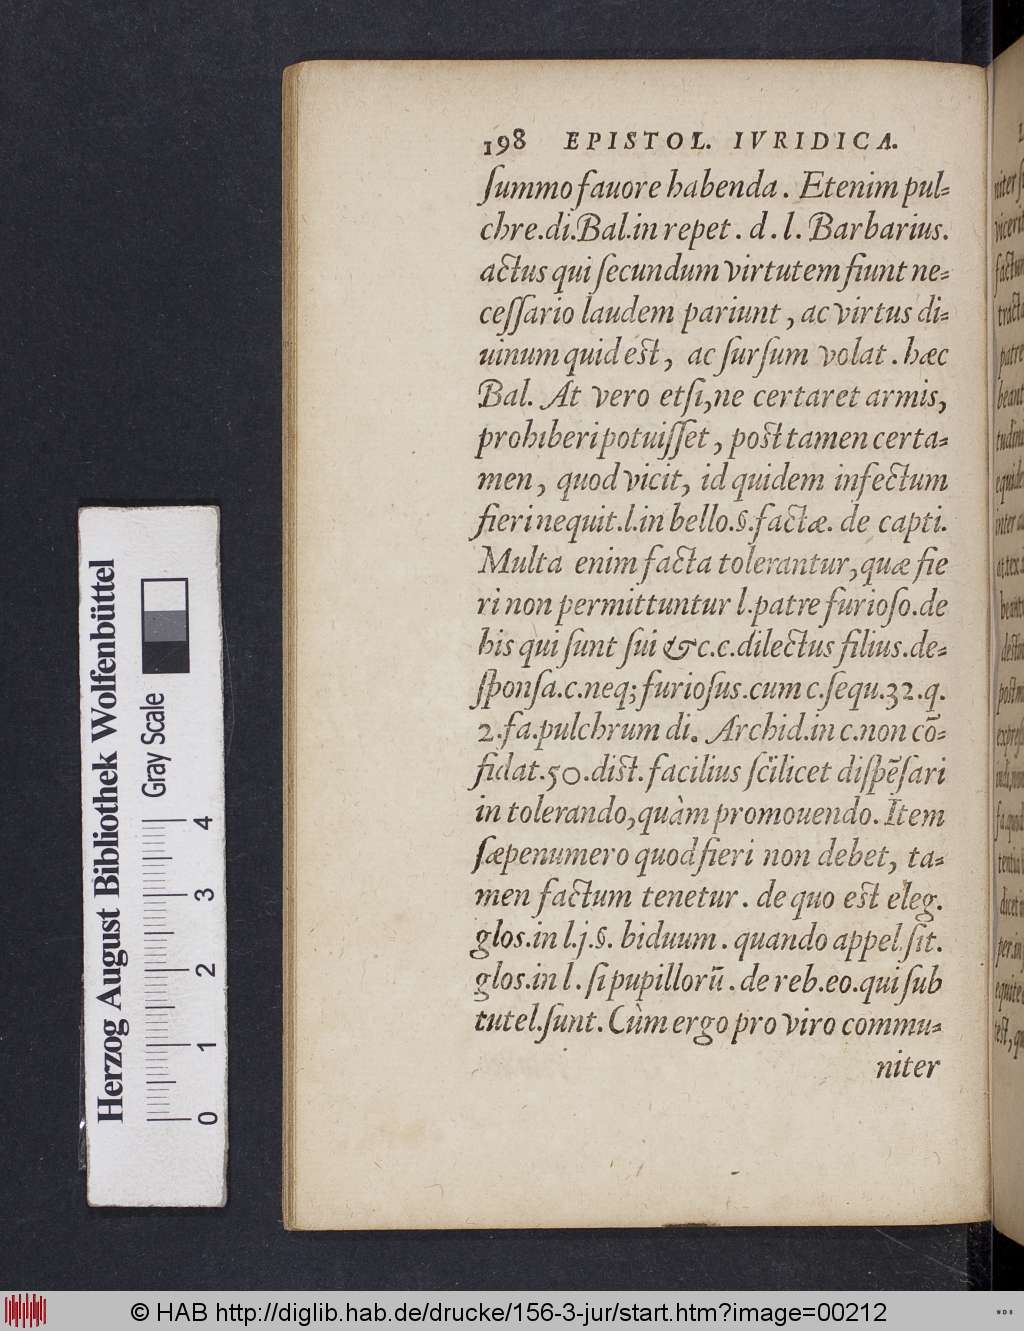 198 EPISTOL. IVRIDICA.
ſummo fauore habenda. Etenim pul-
chre.di.Bal.in repet. d. l. Barbarius.
actus qui ſecundum virtutem fiunt ne-
ceſſario laudem pariunt, ac virtus di-
uinum quid est, ac ſurſum volat. hæc
Bal. At vero etſi, ne certaret armis,
prohiberi potuiſſet, post tamen certa-
men, quod vicit, id quidem infectum
fieri nequit.l.in bello.§.factæ. de capti.
Multa enim facta tolerantur, quæ fie
ri non permittuntur l.patre furioſo.de
his qui ſunt ſui &c.c.dilectus filius.de-
ſponſa.c.neq; furioſus.cum c.ſequ.32.q.
2.fa.pulchrum di. Archid.in c.non cō-
fidat.50.dist. facilius ſcilicet diſpēſari
in tolerando, quàm promouendo. Item
ſæpenumero quod fieri non debet, ta-
men factum tenetur. de quo est eleg.
glos.in l.j.§. biduum. quando appel.ſit.
glos.in l. ſi pupillorū. de reb.eo.qui ſub
tutel.ſunt. Cùm ergo pro viro commu-
niter
Herzog August Bibliothek Wolfenbüttel
Gray Scale
0 1 2 3 4
© HAB http://diglib.hab.de/drucke/156-3-jur/start.htm?image=00212